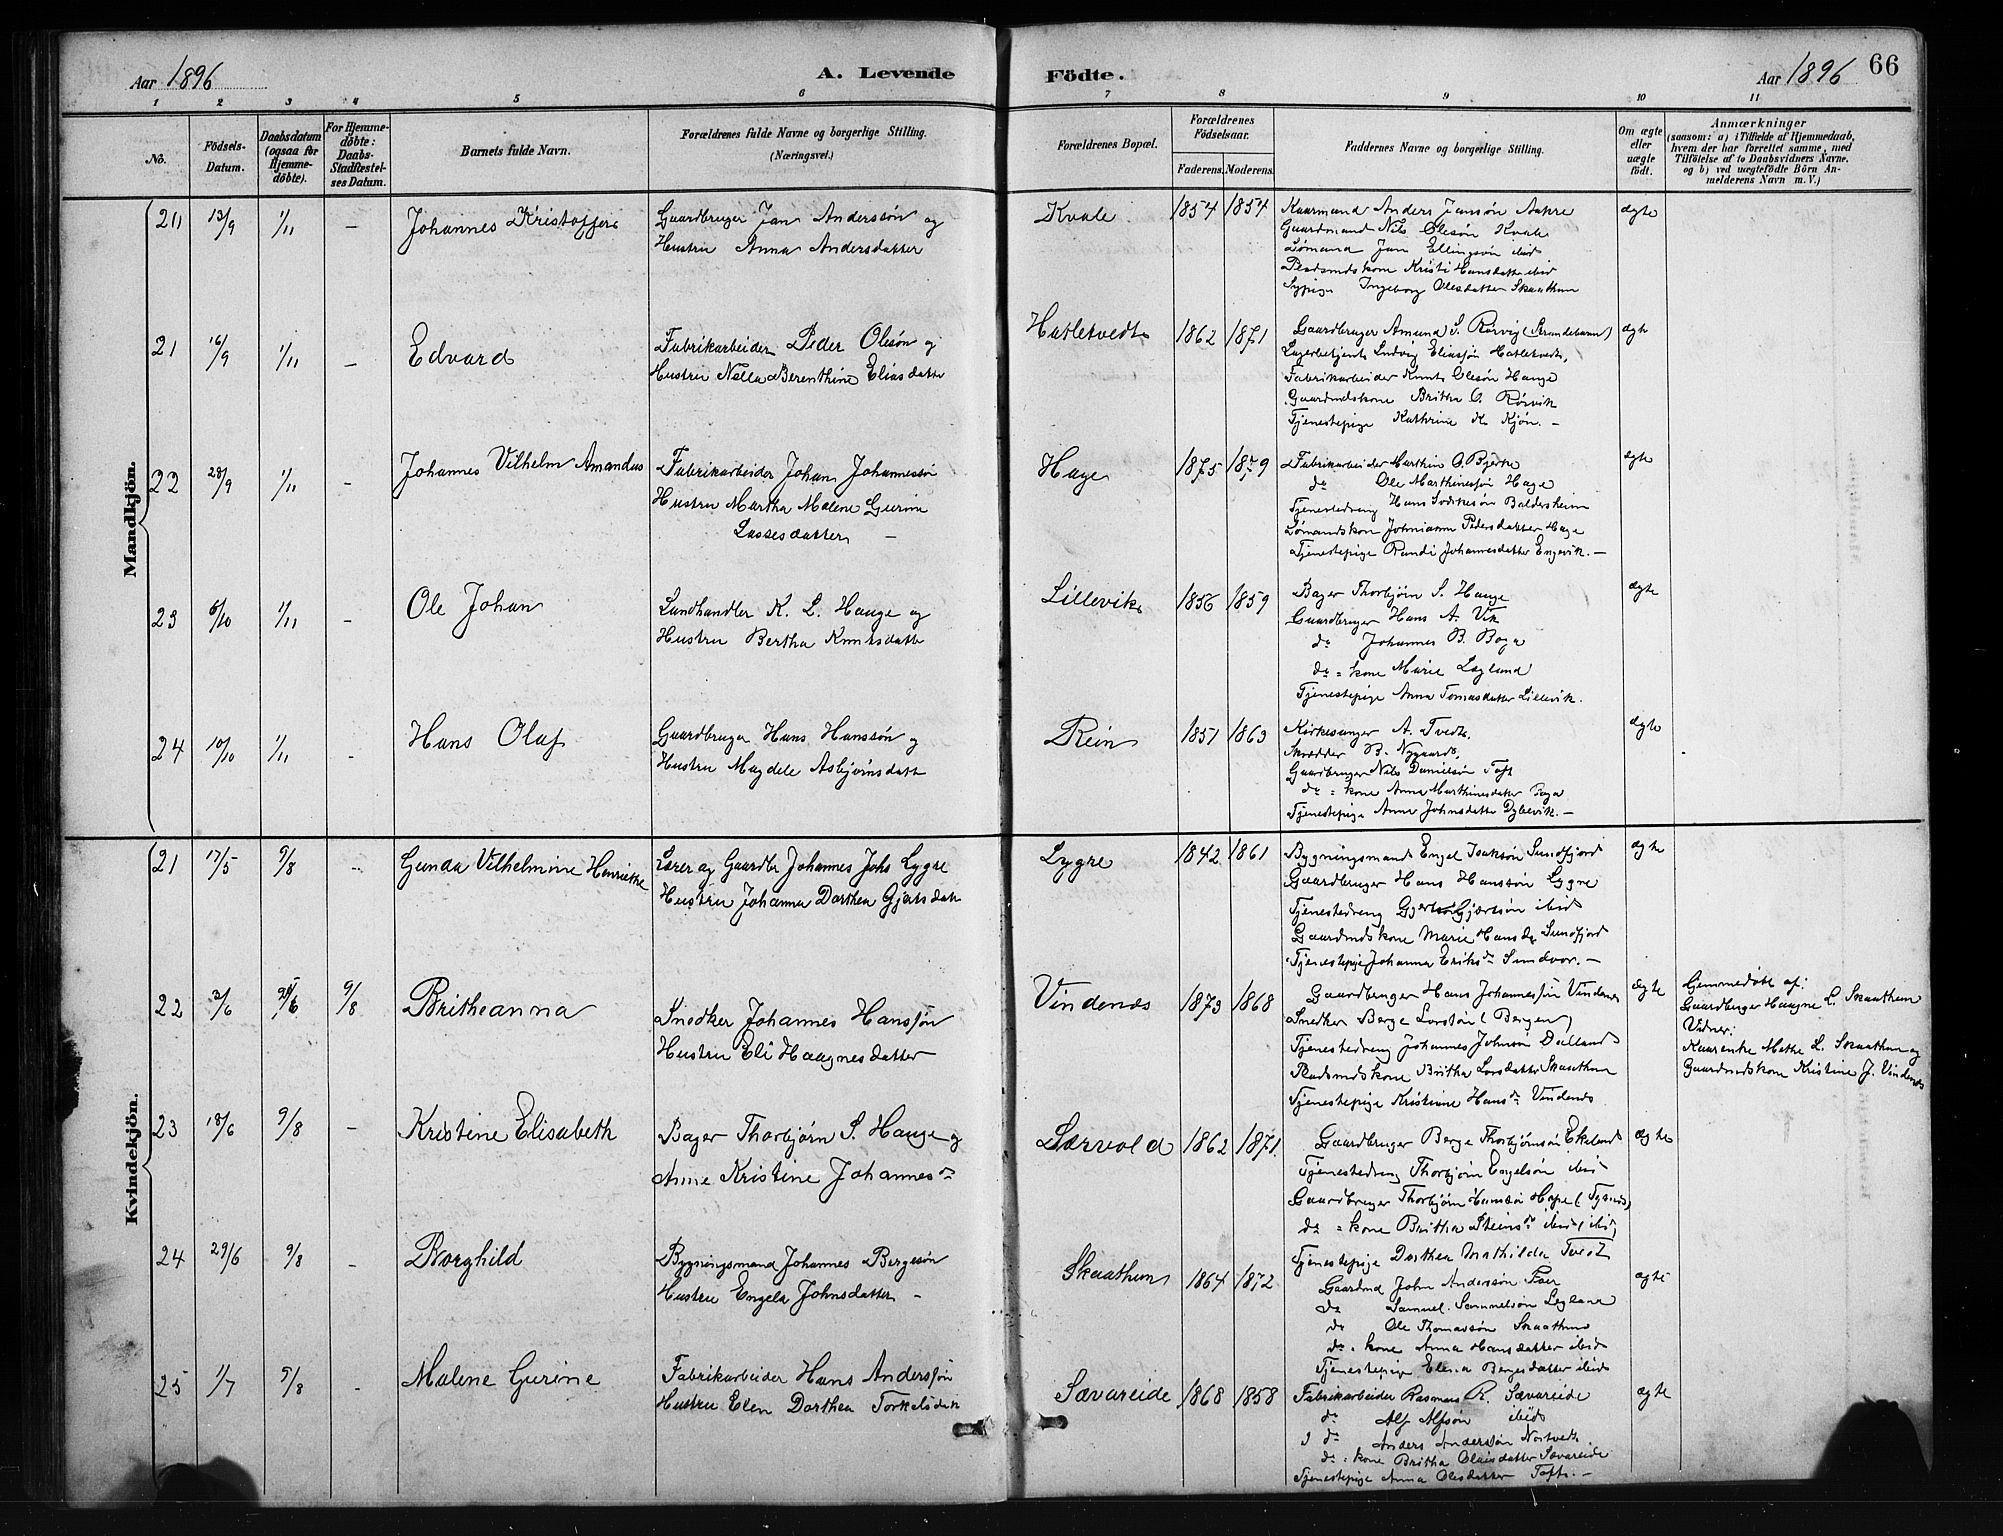 Aar 1896
A. Levende Födte.
Aar 1896 66
1 2 3 4 5 6 7 8 9 10 11
No.
Födsels-
Datum.
Daabsdatum
(ogsaa for
Hjemme-
döbte).
For Hjemme-
döbte:
Daabs-
Stadfæstel-
ses Datum.
Barnets fulde Navn.
Forældrenes fulde Navne og borgerlige Stilling.
(Næringsvei.)
Forældrenes Bopæl.
Forældrenes
Födselsaar.
Faderens. Moderens.
Faddernes Navne og borgerlige Stilling.
Om ægte
eller
uægte
födt.
Anmærkninger
(saasom: a) i Tilfælde af Hjemmedaab,
hvem der har forrettet samme, med
Tilföielse af to Daabsvidners Navne.
og b) ved uægtefödte Börn An-
melderens Navn m. V.)
Mandkjön.
20 13/9 1/11 – Johannes Kristoffer
Gaardbruger Jan Anderssön og
Hustru Anna Andersdatter
Kvale 1854 1854
Kaarmand Anders Jansön Aakre
Gaardmand Nils Olesön Kvale
Lömand Jan Ellingsön ibid
Pladsmdskone Kristi Hansdatter ibid
Sypige Ingeborg Olesdatter Skaathun
ægte
21 16/9 1/11 – Edvard
Fabrikarbeider Peder Olesön og
Hustru Nella Berenthine Eliasdatter
Hatletvedt 1862 1871
Gaardbruger Amund S. Rörvig (Strandebarm)
Lagerbetjent Ludvig Eliassön Hatletvedt,
Fabrikarbeider Knut Olesön Hauge
Gaardmdskone Britha O. Rörvik
Tjenestepige Kathrine K. Kjön. –
ægte
22 28/9 1/11 – Johannes Vilhelm Amandus
Fabrikarbeider Johan Johannessön
Hustru Martha Malene Gurine
Lassesdatter –
Hage 1875 1879
Fabrikarbeider Marthin O. Bjerke
do Ole Marthinessön Hage
Tjenestedreng Hans Baldersheim
Lömandskone Johanna Pedersdatter Hage
Tjenestepige Randi Johannesdatter Engevik. –
ægte
23 6/10 1/11 – Ole Johan
Landhandler K. L. Hauge og
Hustru Bertha Knutsdatter
Lillevik 1856 1859
Bager Thorbjörn S. Hauge
Gaardbruger Hans A. Vik
do Johannes B. Boga
do = kone Marie Lægland
Tjenestepige Anna Tomasdatter Lillevik.
ægte
24 10/10 1/11 – Hans Olaf
Gaardbruger Hans Hanssön og
Hustru Magdele Asbjörnsdatter
Rein 1851 1863
Kirkesanger A. Tvedt.
Skrædder B. Nygaard.
Gaardbruger Nils Danielsön Toft
do = kone Anna Marthinesdatter Boga
Tjenestepige Anna Johnsdatter Dybevik. –
ægte
Kvindekjön.
21 17/5 9/8 – Gunda Vilhelmine Henriette
Lærer og Gaardbr Johannes Johs Lygre
Hustru Johanna Dorthea Gjertsdatter
Lygre 1842 1861
Bygningsmand Engel Isaksön Sundfjord
Gaardbruger Hans Hanssön Lygre
Tjenestedreng Gjertsön ibid
Gaardmdskone Marie Hansdr Sundfjord
Tjenestepige Johanna Eriksdr Sundvor. –
ægte
22 3/6 /6 9/8 Britheanna
Snedker Johannes Hanssön
Hustru Eli Haagnesdatter
Vindenes 1873 1868
Gaardbruger Hans Johannessön Vindenes
Snedker Berge Larssön (Bergen)
Tjenestedreng Johannes Johnsön Dalland
Pladsmdskone Britha Larsdatter Skaathun
Tjenestepige Kristiane Hansdr Vindenes
ægte
Hjemmedöbt af:
Gaardbruger Haagne L. Skaathun
Vidner:
Kaarenke Mette L. Skaathun og
Gaardmdskone Kristine J. Vindenes
23 18/6 9/8 – Kristine Elisabeth
Bager Thorbjörn S. Hauge og
Anne Kristine Johannesdr
Særvold 1862 1871.
Gaardbruger Berge Thorbjörnsön Ekeland
Tjenestedreng Thorbjörn Engelsön ibid
Gaardbruger Thorbjörn Hansön Hope (Tysnes)
do = kone Britha Steinsdr ibid (ibid)
Tjenestepige Dorthea Mathilda Tveit
ægte
24 29/6 9/8 – Borghild
Bygningsmand Johannes Bergesön
Hustru Engela Johnsdatter –
Skaathun 1864 1872
Gaardmd John Andersön
do Samuel Samuelsön Legland
do Ole Thomassön Skaathun
do = kone Anna Hansdatter ibid
Tjenestepige Elena Bergesdatter ibid
ægte
25 1/7 9/8 – Malene Gurine
Fabrikarbeider Hans Anderssön
Hustru Elen Dorthea Torkelsdatter
Sævareide 1868 1858
Fabrikarbeider Rasmus R. Sævareide
do Alf Alfsön ibid
do Anders Anderssön Nortvedt
do = kone Britha Olaisdatter Sævareide
Tjenestepige Anna Olesdatter Toft. –
ægte